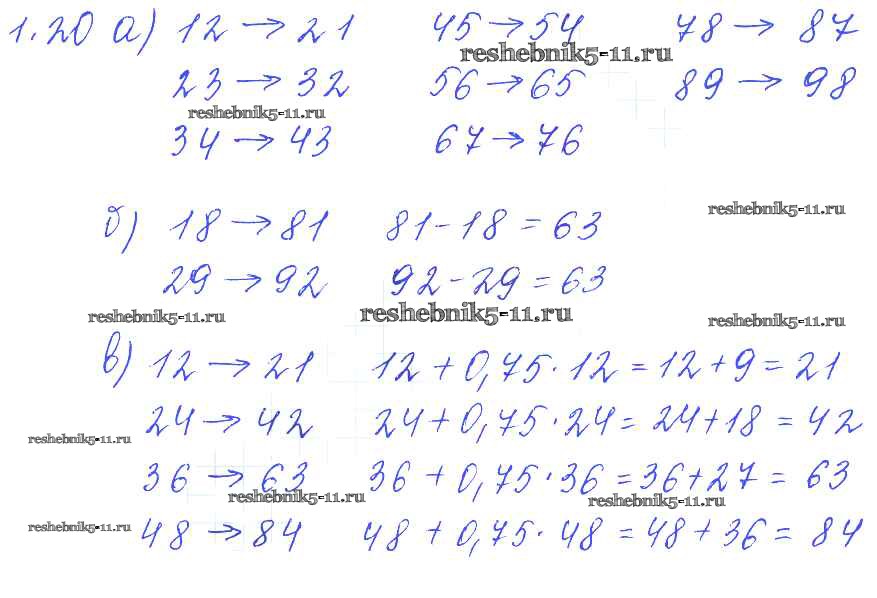 1.20 а) 12 → 21 45 → 54 78 → 87
reshebnik5-11.ru
23 → 32 56 → 65 89 → 98
reshebnik5-11.ru
34 → 43 67 → 76
reshebnik5-11.ru
б) 18 → 81 81 - 18 = 63
29 → 92 92 - 29 = 63
reshebnik5-11.ru reshebnik5-11.ru reshebnik5-11.ru
в) 12 → 21 12 + 0,75 · 12 = 12 + 9 = 21
24 → 42 24 + 0,75 · 24 = 24 + 18 = 42
reshebnik5-11.ru
36 → 63 36 + 0,75 · 36 = 36 + 27 = 63
reshebnik5-11.ru reshebnik5-11.ru
reshebnik5-11.ru
48 → 84 48 + 0,75 · 48 = 48 + 36 = 84